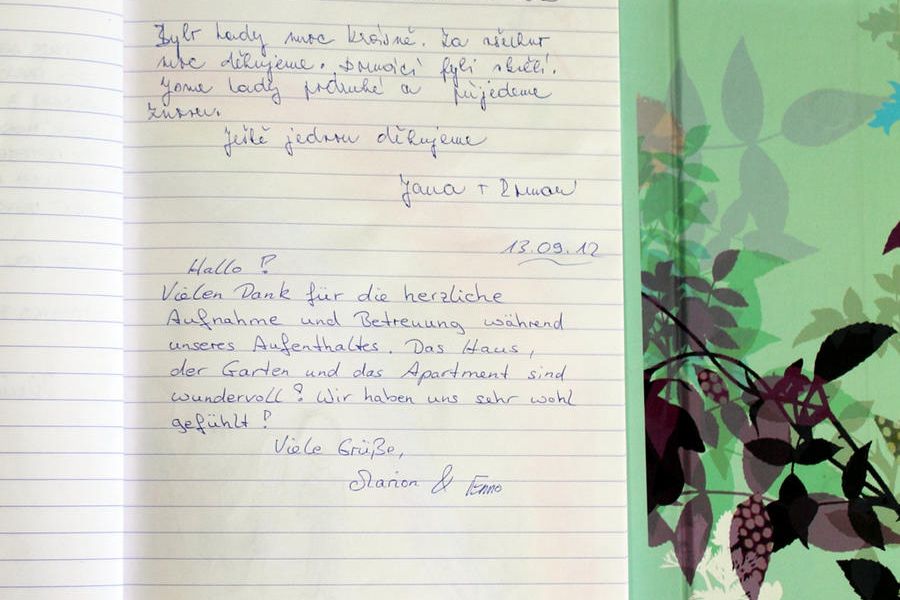 Bylo tady moc krásně. Za všechno
moc děkujeme. Domácí byli skvělí.
Jsme tady podruhé a přijedeme
znovu.
Ještě jednou děkujeme
Jana + Roman
13.09.12
Hallo!
Vielen Dank für die herzliche
Aufnahme und Betreuung während
unseres Aufenthaltes. Das Haus,
der Garten und das Apartment sind
wundervoll! Wir haben uns sehr wohl
gefühlt!
Viele Grüße,
Marion & Enno